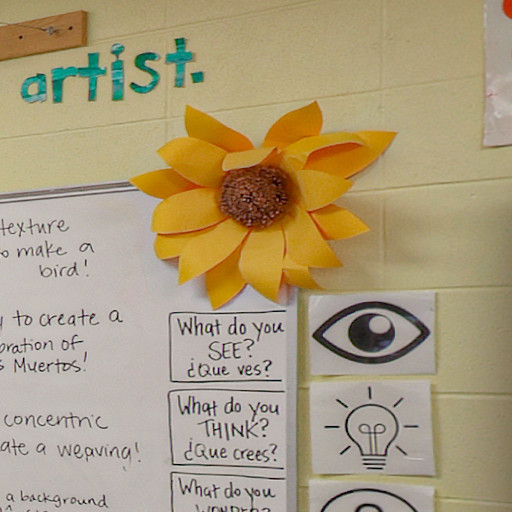 artist.
texture
to make a
bird!
to create a
Muertos!
concentric
a weaving!
a background
What do you
SEE?
¿Que ves?
What do you
THINK?
¿Que crees?
What do you
WONDER?